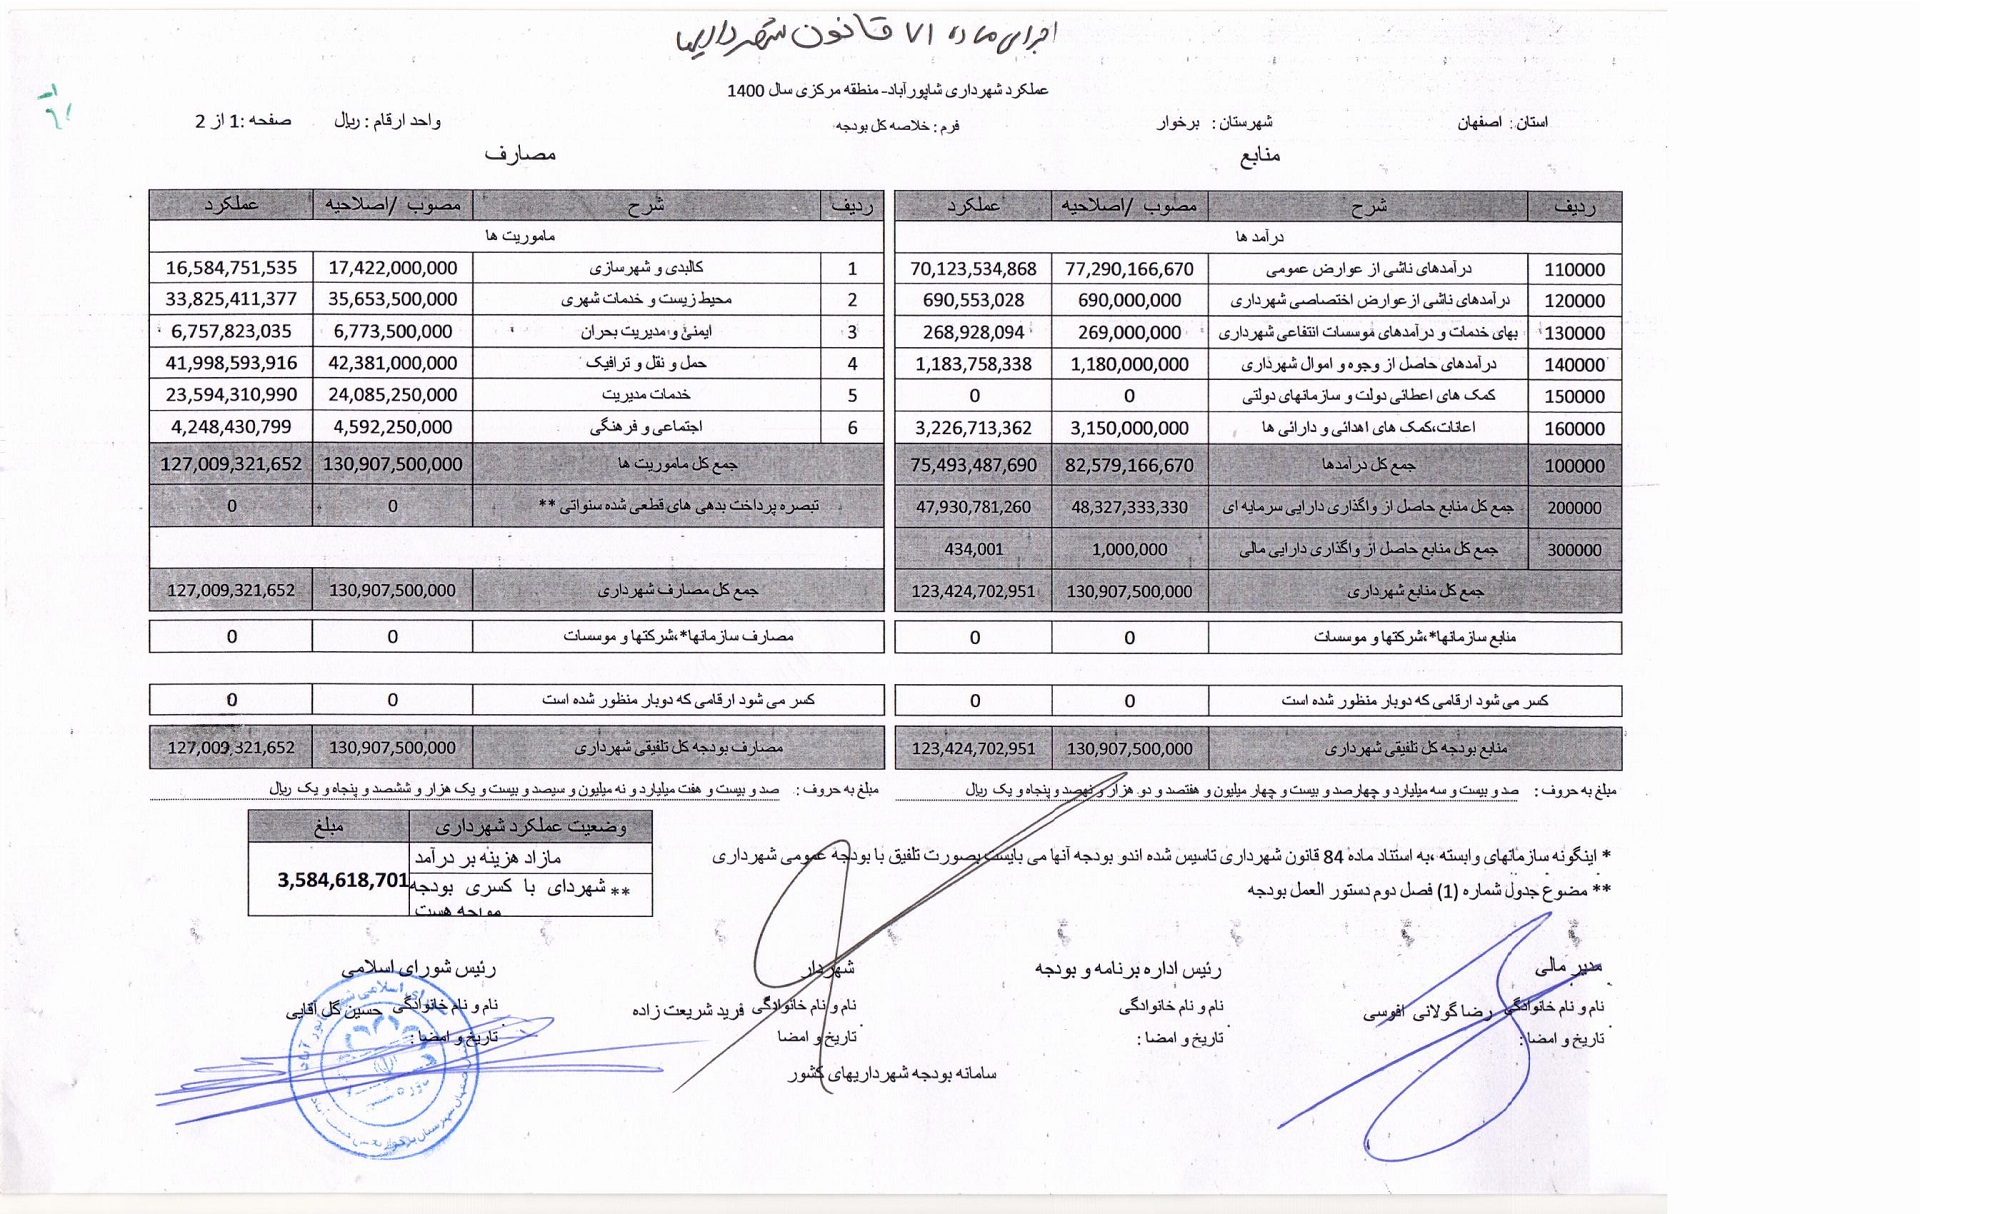 اجرای ماده ۷۱ قانون شهرداریها
عملکرد شهرداری شاپورآباد- منطقه مرکزی سال 1400
استان: اصفهان شهرستان: برخوار فرم : خلاصه کل بودجه واحد ارقام : ریال صفحه :1 از 2
منابع مصارف
ردیف شرح مصوب /اصلاحیه عملکرد ردیف شرح مصوب /اصلاحیه عملکرد
درآمد ها ماموریت ها
110000 درآمدهای ناشی از عوارض عمومی 77,290,166,670 70,123,534,868 1 کالبدی و شهرسازی 17,422,000,000 16,584,751,535
120000 درآمدهای ناشی ازعوارض اختصاصی شهرداری 690,000,000 690,553,028 2 محیط زیست و خدمات شهری 35,653,500,000 33,825,411,377
130000 بهای خدمات و درآمدهای موسسات انتفاعی شهرداری 269,000,000 268,928,094 3 ایمنی و مدیریت بحران 6,773,500,000 6,757,823,035
140000 درآمدهای حاصل از وجوه و اموال شهرداری 1,180,000,000 1,183,758,338 4 حمل و نقل و ترافیک 42,381,000,000 41,998,593,916
150000 کمک های اعطائی دولت و سازمانهای دولتی 0 0 5 خدمات مدیریت 24,085,250,000 23,594,310,990
160000 اعانات،کمک های اهدائی و دارائی ها 3,150,000,000 3,226,713,362 6 اجتماعی و فرهنگی 4,592,250,000 4,248,430,799
100000 جمع کل درآمدها 82,579,166,670 75,493,487,690 جمع کل ماموریت ها 130,907,500,000 127,009,321,652
200000 جمع کل منابع حاصل از واگذاری دارایی سرمایه ای 48,327,333,330 47,930,781,260 تبصره پرداخت بدهی های قطعی شده سنواتی ** 0 0
300000 جمع کل منابع حاصل از واگذاری دارایی مالی 1,000,000 434,001
جمع کل منابع شهرداری 130,907,500,000 123,424,702,951 جمع کل مصارف شهرداری 130,907,500,000 127,009,321,652
منابع سازمانها*،شرکتها و موسسات 0 0 مصارف سازمانها*،شرکتها و موسسات 0 0
کسر می شود ارقامی که دوبار منظور شده است 0 0 کسر می شود ارقامی که دوبار منظور شده است 0 0
منابع بودجه کل تلفیقی شهرداری 130,907,500,000 123,424,702,951 مصارف بودجه کل تلفیقی شهرداری 130,907,500,000 127,009,321,652
مبلغ به حروف : صد و بیست و سه میلیارد و چهارصد و بیست و چهار میلیون و هفتصد و دو هزار و نهصد و پنجاه و یک ریال مبلغ به حروف : صد و بیست و هفت میلیارد و نه میلیون و سیصد و بیست و یک هزار و ششصد و پنجاه و یک ریال
وضعیت عملکرد شهرداری مبلغ
مازاد هزینه بر درآمد
** شهردای با کسری بودجه مواجه هست 3,584,618,701
* اینگونه سازمانهای وابسته ،به استناد ماده 84 قانون شهرداری تاسیس شده اندو بودجه آنها می بایست بصورت تلفیق با بودجه عمومی شهرداری
** مضوع جدول شماره (1) فصل دوم دستور العمل بودجه
مدیر مالی رئیس اداره برنامه و بودجه شهردار رئیس شورای اسلامی
نام و نام خانوادگی رضا گولانی افوسی نام و نام خانوادگی نام و نام خانوادگی فرید شریعت زاده نام و نام خانوادگی حسین گل آقایی
تاریخ و امضا : تاریخ و امضا : تاریخ و امضا تاریخ و امضا :
سامانه بودجه شهرداریهای کشور